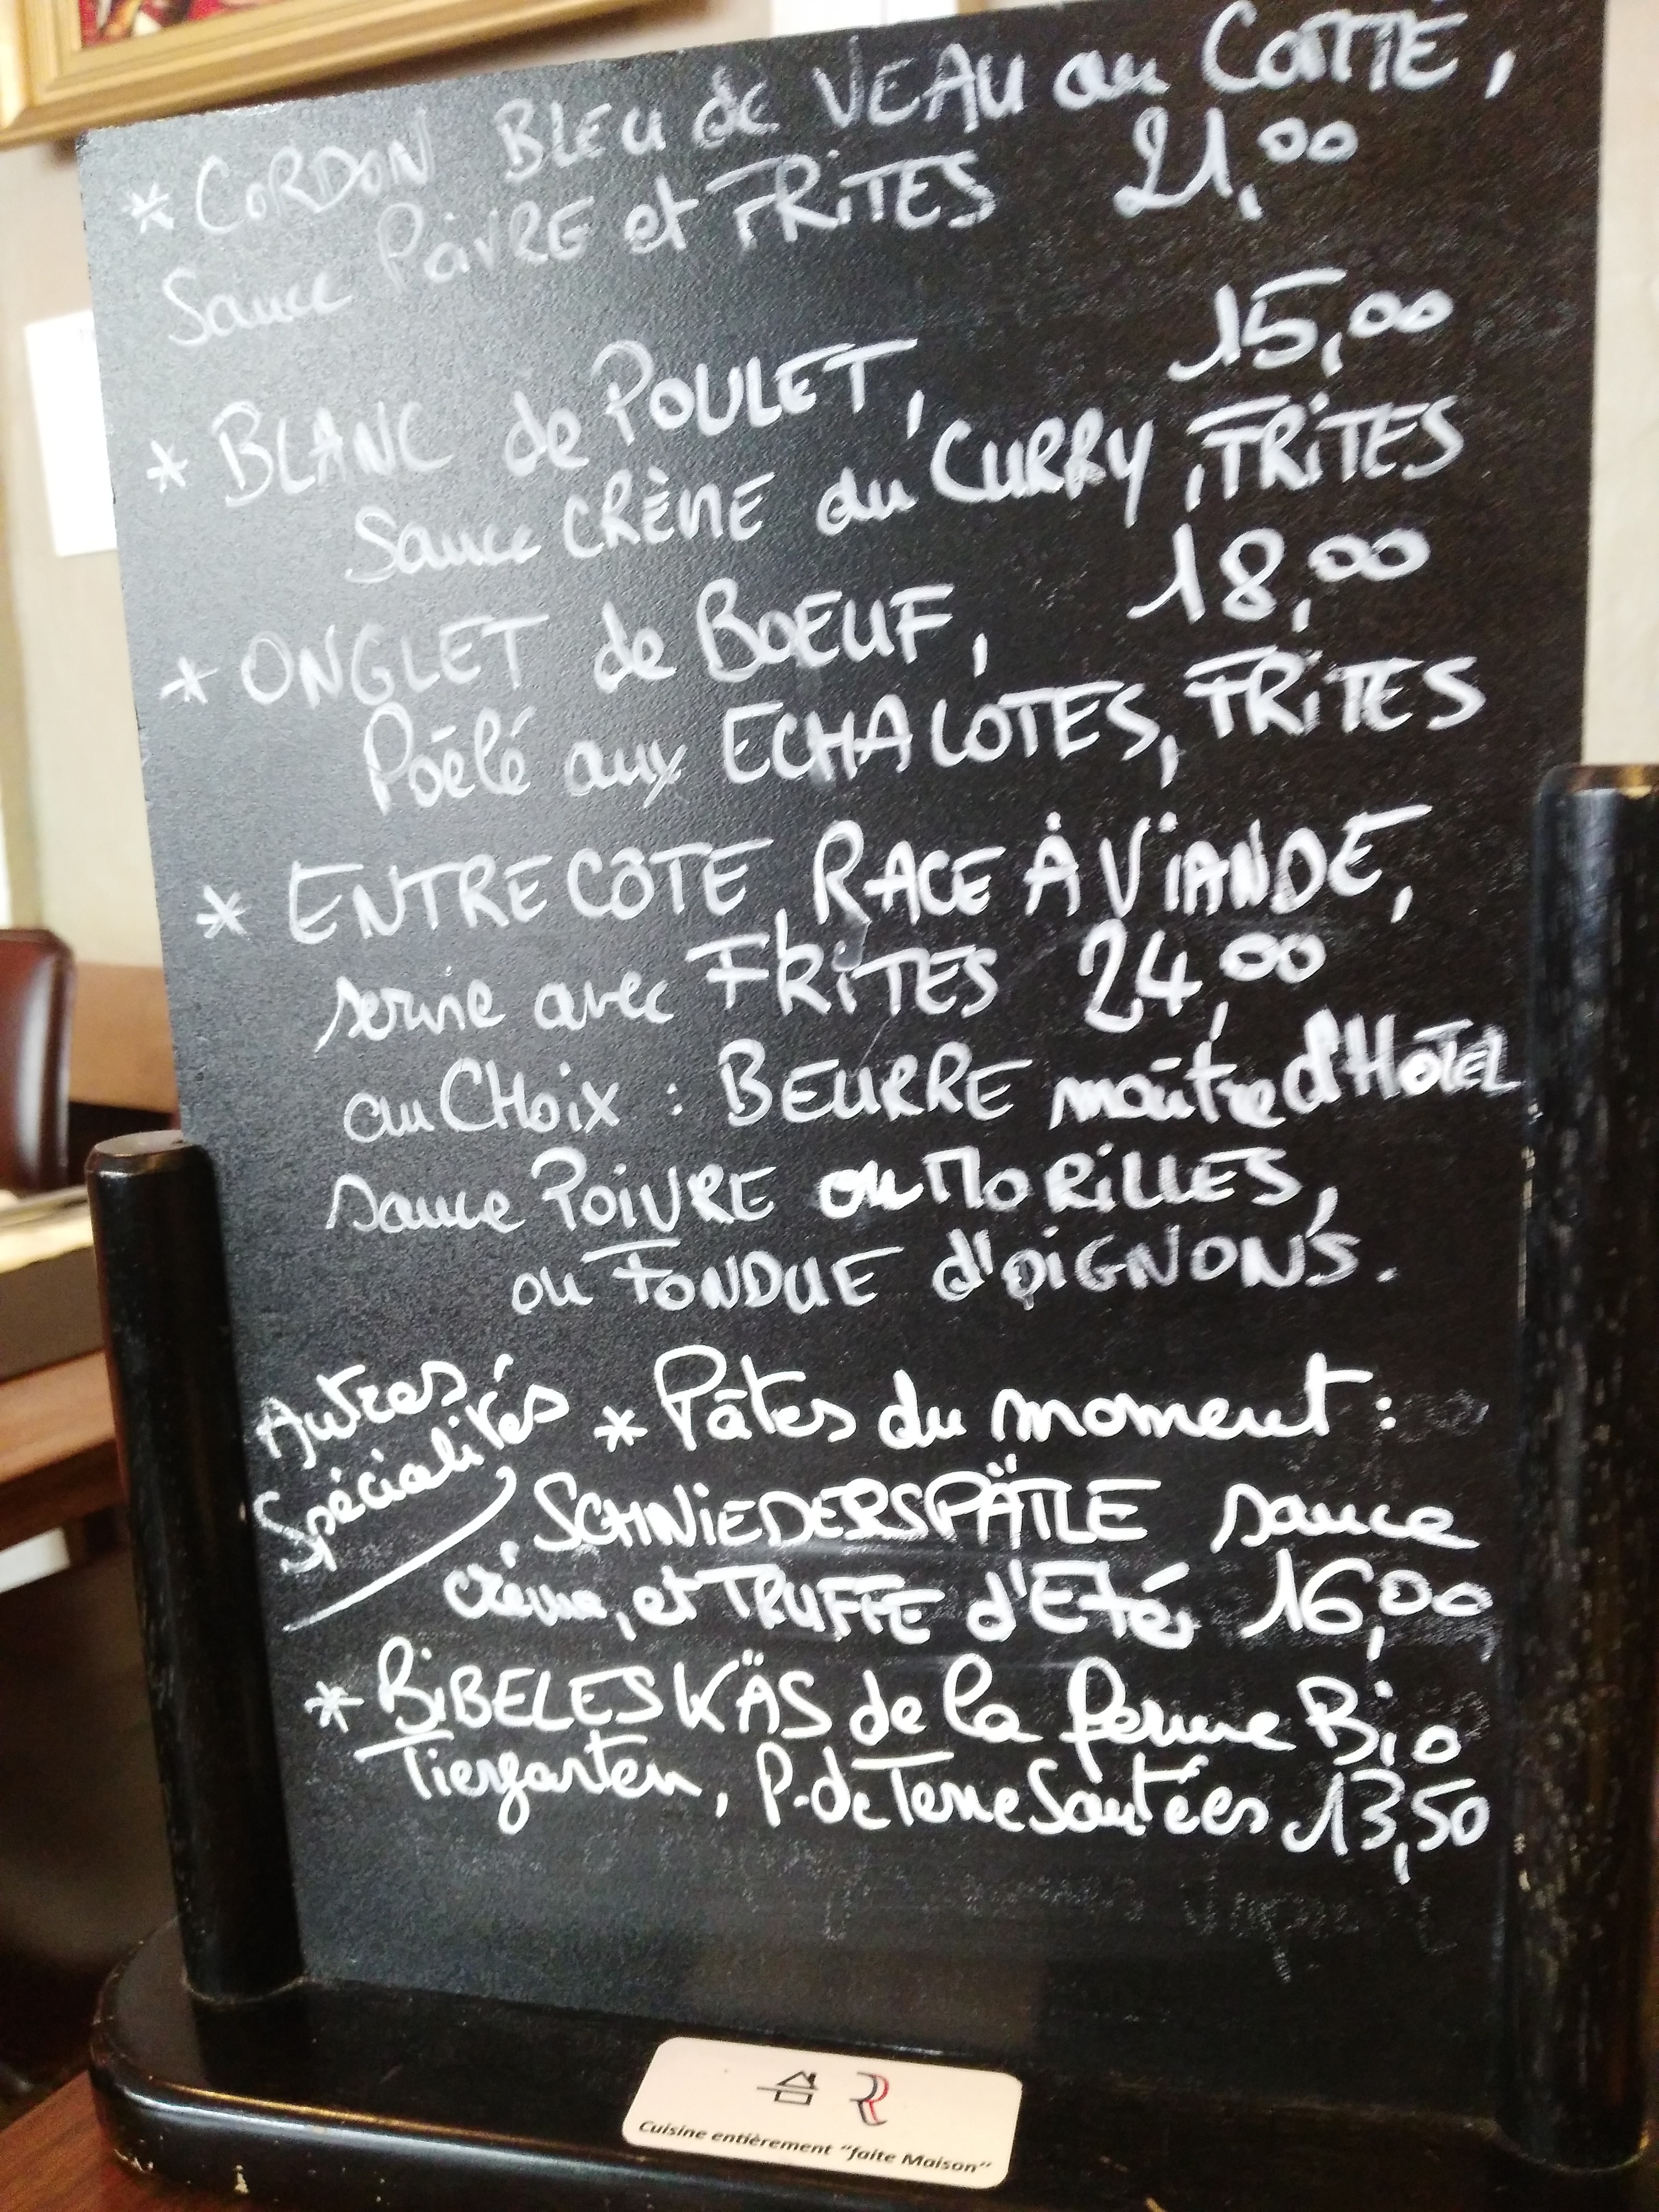 * CORDON BLEU de VEAU au COMTÉ,
Sauce POiVRE et FRiTES 21,00
* BLANC de POULET, 15,00
Sauce CRÈME du CURRY, FRiTES
* ONGLET de BOEUF, 18,00
Poêlé aux ECHALOTES, FRiTES
* ENTRECÔTE, RACE À ViANDE,
servie avec FRiTES 24,00
au CHoix : BEURRE maître d'HÔTEL
sauce POiVRE ou MORiLLES,
ou FONDUE d'OiGNONS.
Autres
Spécialités
* Pâtes du moment :
SCHNiEDERSPÄTLE sauce
crème, et TRUFFE d'Eté, 16,00
* BiBELESKÄS de la ferme Bio
Tiergarten, P. de Terre Sautées 13,50
Cuisine entièrement "faite Maison"